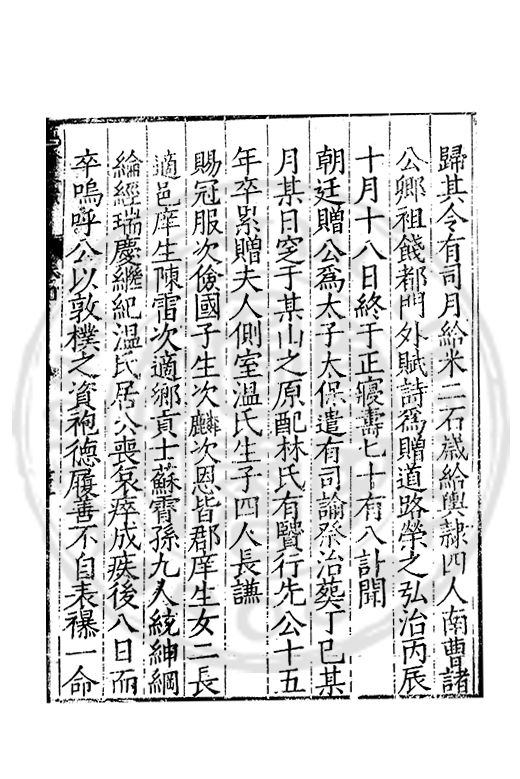 歸其令有司月給米二石歲給輿隷四人南曹諸
公卿祖餞都門外賦詩爲贈道路榮之弘治丙辰
十月十八日終于正寢壽七十有八訃聞
朝廷贈公爲太子太保遣有司諭祭治葬丁巳某
月某日窆于某山之原配林氏有賢行先公十五
年卒累贈夫人側室溫氏生子四人長謙
賜冠服次儉國子生次麟次恩皆郡庠生女二長
適邑庠生陳雷次適鄉貢士蘇霄孫九人統紳綱
綸經瑞慶繼紀溫氏居公喪哀瘁成疾後八日而
卒嗚呼公以敦樸之資袍德履善不自表襮一命